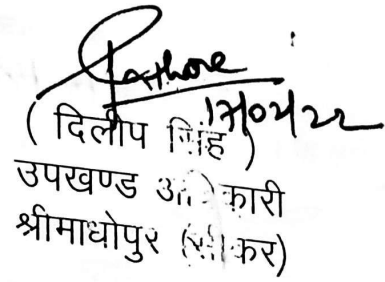 Rathore
17/02/22
( दिलीप सिंह )
उपखण्ड अधिकारी
श्रीमाधोपुर (सीकर)